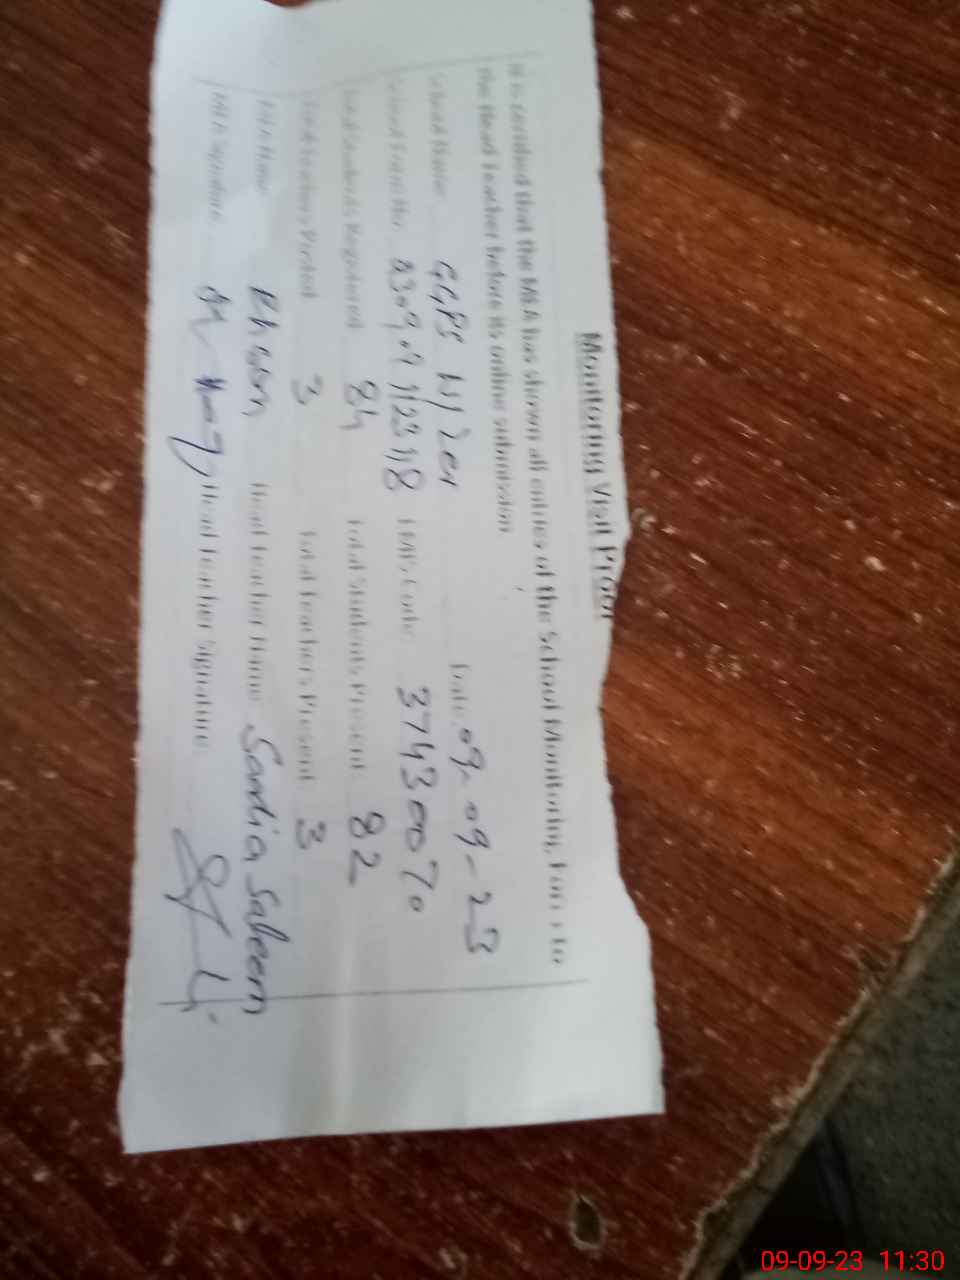 Monitoring Visit Proof
It is certified that the MEA has shown all entries of the School Monitoring Form to
the Head Teacher before its online submission
School Name GGPS Date: 09-09-23
School EMIS Code 37430070
Total Students Registered 84 Total Students Present 82
Total Teachers Posted 3 Total Teachers Present 3
MEA Name Head Teacher Name Saadia Saleem
MEA Signature Head Teacher Signature
09-09-23 11:30